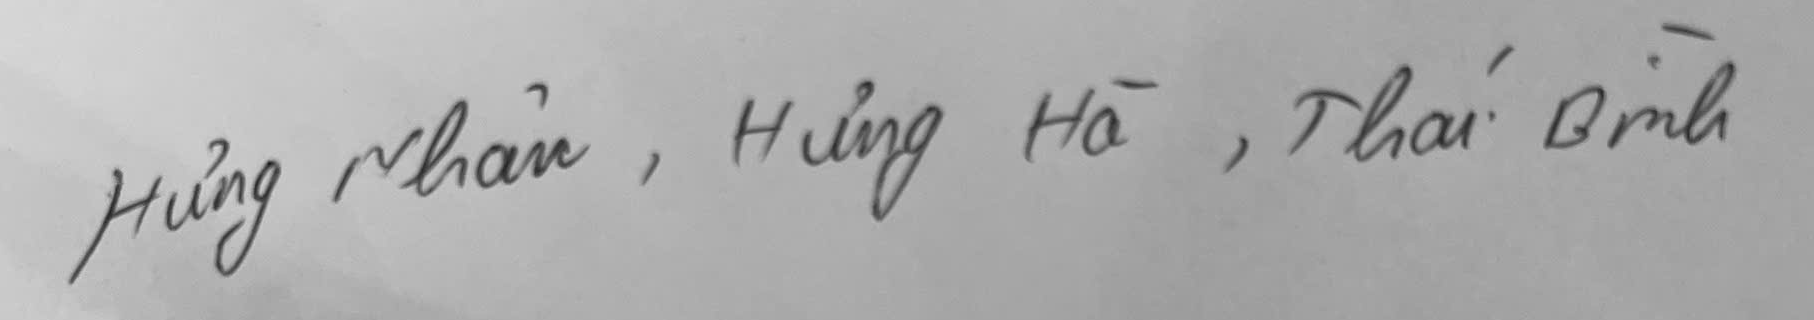 Hưng Nhân, Hưng Hà, Thái Bình